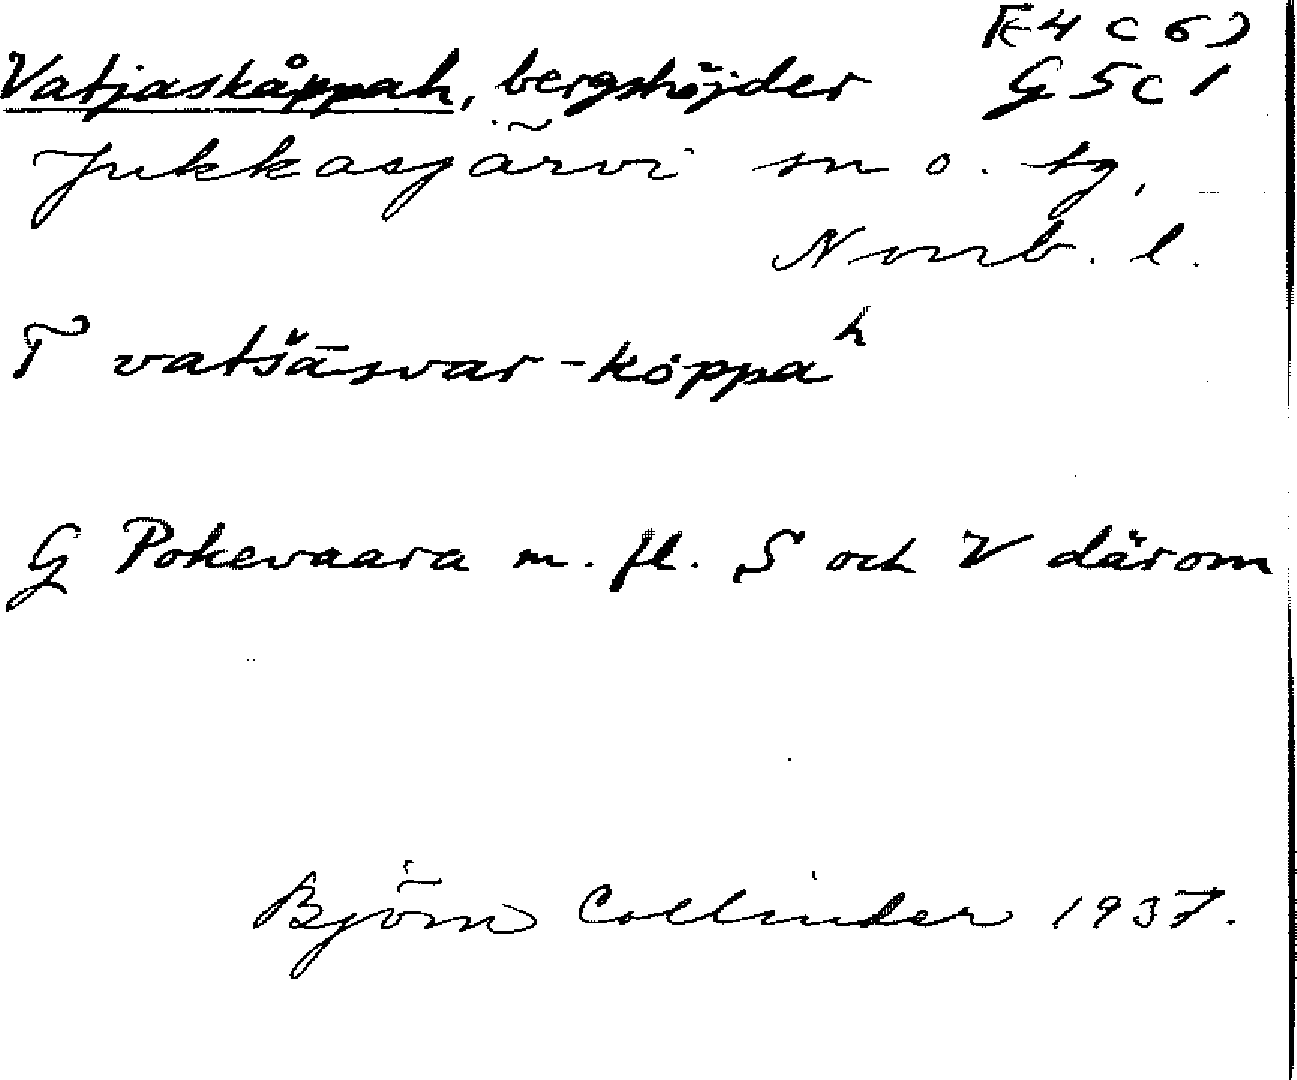 [E4 c 6]
Vatjaskåppah, bergshöjder G 5 c 1
Jukkasjärvi sn o. tg,
Norrb. l.
T vatšāsvar-kǫppaʰ
G Pokevaara m. fl. S och V därom
Björn Collinder 1937.